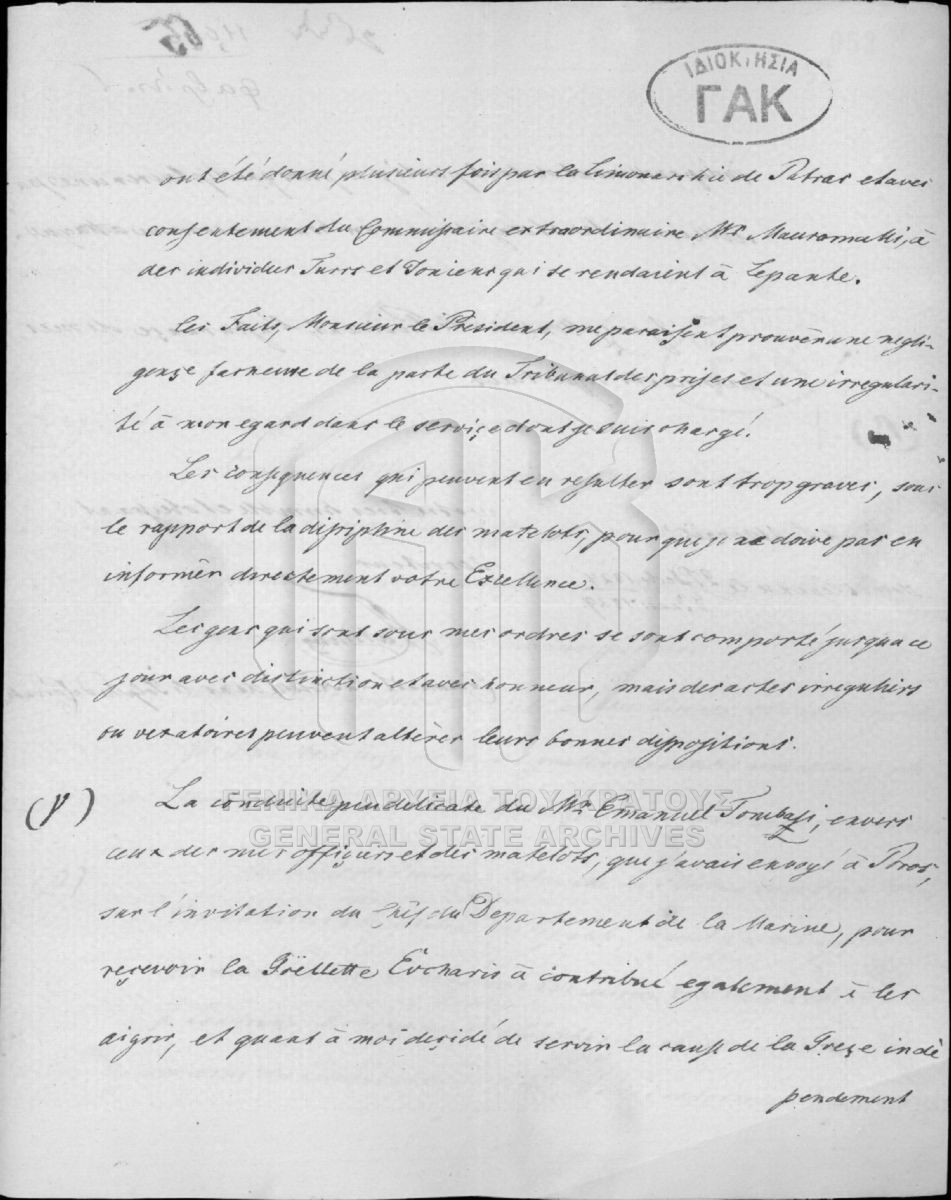 ΙΔΙΟΚΤΗΣΙΑ
ΓΑΚ
ont été donné plusieurs fois par la Limonarchie de Patras et avec
consentement du Commissaire extraordinaire Mr Mauromatti, à
des individus Turcs et Ioniens qui se rendaient à Lepante.
Les Faits, Monsieur le Président, me paraissent prouvèr une negli-
gençe facheuse de la parte du Tribunat des prises et une irregulari-
té à mon egard dans le serviçe dont je suis chargé.
Les consequences qui peuvent en resulter sont trop graves, sous
le rapport de la discipline des matelots, pour que je ne doive pas en
informèr directement votre Excellence.
Les gens qui sont sous mes ordres se sont comporté jusqu'a ce
jour avec distinction et avec honneur, mais des actes irreguliers
ou vexatoires peuvent altèrèr leurs bonnes dispositions.
(γ) La conduite peu delicate du Mr Emanuel Tombasi, envers
ceux des mes offiçiers et des matelots, que j'avais envoyé à Poros,
sur l'invitation du Chéf du Departement de la Marine, pour
reçevoir la Goëllette Evcharis à contribué egalement à les
aigrir, et quant à moi deçidé de servir la cause de la Greçe indè
pendement
ΓΕΝΙΚΑ ΑΡΧΕΙΑ ΤΟΥ ΚΡΑΤΟΥΣ
GENERAL STATE ARCHIVES